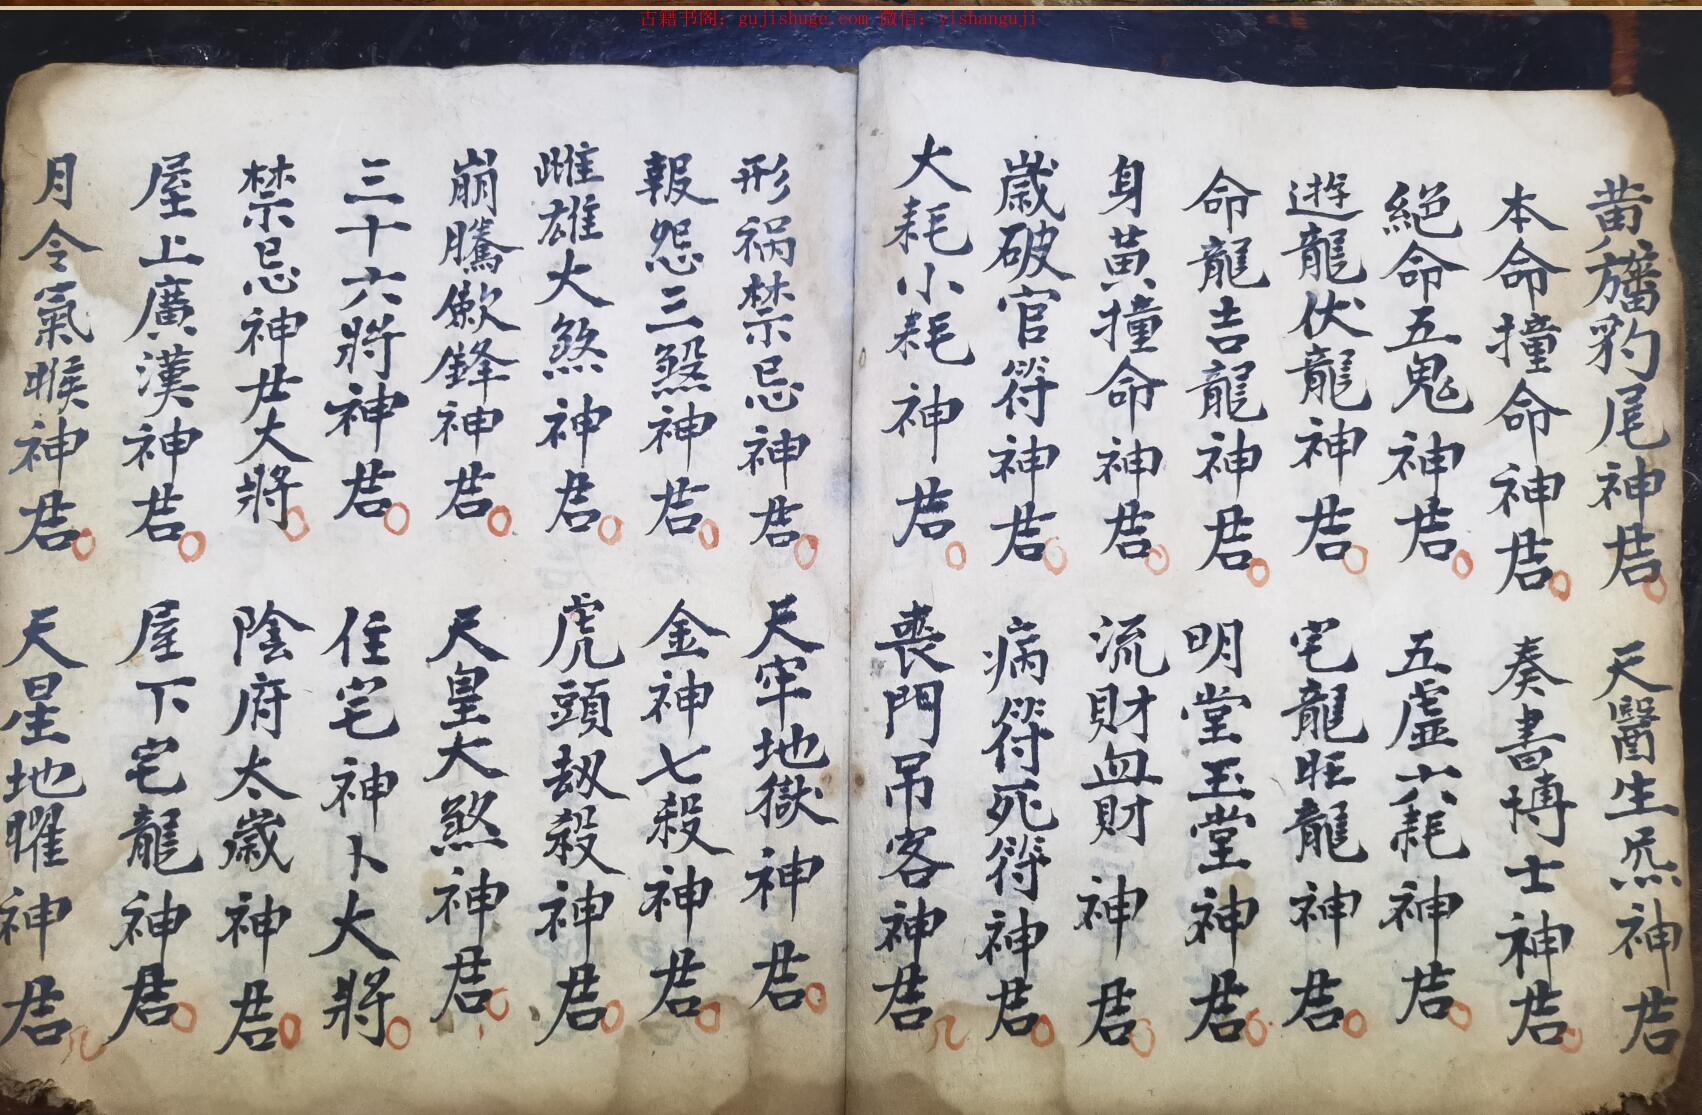 古籍书阁：gujishuge.com 微信：yishanguji
黄旛豹尾神君 天醫生炁神君
本命撞命神君 奏書博士神君
絕命五鬼神君 五虛六耗神君
遊龍伏龍神君 宅龍旺龍神君
命龍吉龍神君 明堂玉堂神君
身黄撞命神君 流財血財神君
歲破官符神君 病符死符神君
大耗小耗神君 喪門吊客神君
形祸禁忌神君 天牢地獄神君
報怨三煞神君 金神七殺神君
雌雄大煞神君 虎頭劫殺神君
崩騰鋒神君 天皇大煞神君
三十六將神君 住宅神卜大將
禁忌神廿大將 陰府太歲神君
屋上廣漢神君 屋下宅龍神君
月令氣睺神君 天星地曜神君